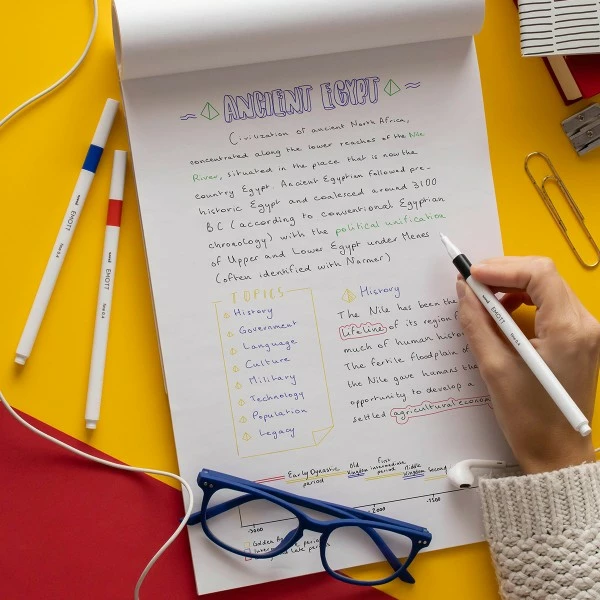 ANCIENT EGYPT
Civilization of ancient North Africa,
concentrated along the lower reaches of the Nile
River, situated in the place that is now the
country Egypt. Ancient Egyptian followed pre-
historic Egypt and coalesced around 3100
BC (according to conventional Egyptian
chronology) with the political unification
of Upper and Lower Egypt under Menes
(often identified with Narmer)
TOPICS
History
Government
Language
Culture
Military
Technology
Population
Legacy
History
The Nile has been the
lifeline of its region f
much of human histor
The fertile floodplain of
the Nile gave humans the
opportunity to develop a
settled agricultural econom
Early Dynastic
period
Old
Kingdom
First
intermediate
period
Middle
Kingdom
Second
-3000
-2000
-1500
Golden
period
Late period
uni EMOTT
uni EMOTT
EMOTT